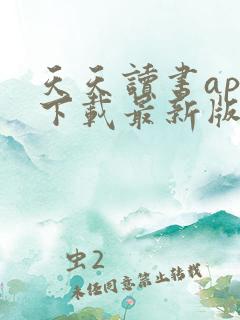 天天讀書ap
下載最新版
虫2
未任同意禁止转载